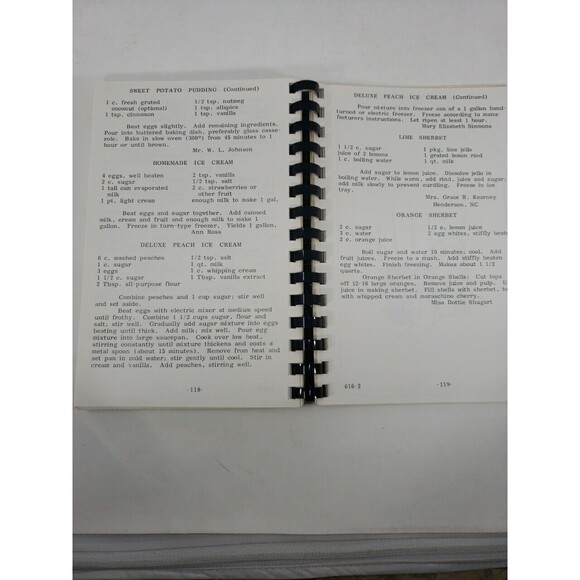 SWEET POTATO PUDDING (Continued)
1 c. fresh grated 1/2 tsp. nutmeg
coconut (optional) 1 tsp. allspice
1 tsp. cinnamon 1 tsp. vanilla
Beat eggs slightly. Add remaining ingredients.
Pour into buttered baking dish, preferably glass casse-
role. Bake in slow oven (300°) from 45 minutes to 1
hour or until brown.
Mr. W. L. Johnson
HOMEMADE ICE CREAM
4 eggs, well beaten 2 tsp. vanilla
2 c. sugar 1/2 tsp. salt
1 tall can evaporated 2 c. strawberries or
milk other fruit
1 pt. light cream enough milk to make 1 gal.
Beat eggs and sugar together. Add canned
milk, cream and fruit and enough milk to make 1
gallon. Freeze in turn-type freezer. Yields 1 gallon.
Ann Ross
DELUXE PEACH ICE CREAM
6 c. mashed peaches 1/2 tsp. salt
1 c. sugar 1 qt. milk
3 eggs 1 c. whipping cream
1 1/2 c. sugar 1 Tbsp. vanilla extract
2 Tbsp. all-purpose flour
Combine peaches and 1 cup sugar; stir well
and set aside.
Beat eggs with electric mixer at medium speed
until frothy. Combine 1 1/2 cups sugar, flour and
salt; stir well. Gradually add sugar mixture into eggs
beating until thick. Add milk; mix well. Pour egg
mixture into large saucepan. Cook over low heat,
stirring constantly until mixture thickens and coats a
metal spoon (about 15 minutes). Remove from heat and
set pan in cold water; stir gently until cool. Stir in
cream and vanilla. Add peaches, stirring well.
-118-
DELUXE PEACH ICE CREAM (Continued)
Pour mixture into freezer can of a 1 gallon hand
turned or electric freezer. Freeze according to manu-
facturers instructions. Let ripen at least 1 hour.
Mary Elizabeth Simmons
LIME SHERBET
1 1/2 c. sugar 1 pkg. lime jello
juice of 2 lemons 1 grated lemon rind
1 c. boiling water 1 qt. milk
Add sugar to lemon juice. Dissolve jello in
boiling water. While warm, add rind, juice and sugar;
add milk slowly to prevent curdling. Freeze in ice
tray.
Mrs. Grace R. Kearney
Henderson, NC
ORANGE SHERBET
2 c. sugar 1/2 c. lemon juice
3 c. water 2 egg whites, stiffly beat
2 c. orange juice
Boil sugar and water 10 minutes; cool. Add
fruit juices. Freeze to a mush. Add stiffly beaten
egg whites. Finish freezing. Makes about 1 1/2
quarts.
Orange Sherbet in Orange Shells: Cut tops
off 12-16 large oranges. Remove juice and pulp.
juice in making sherbet. Fill shells with sherbet, to
with whipped cream and maraschino cherry.
Miss Dottie Shugart
616-2 -119-